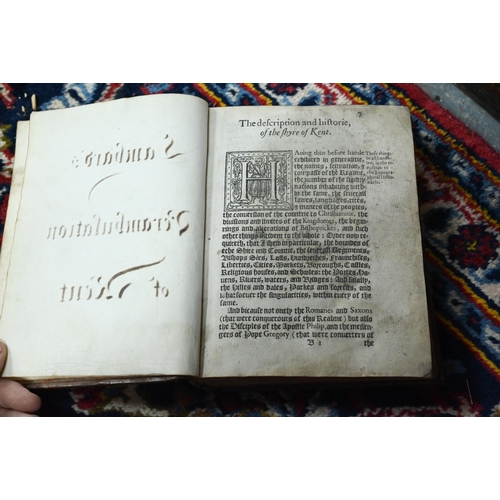 Lambard's
Perambulation
of Kent
The description and historie,
of the shyre of Kent.
Hauing thus before hande
exhibited in generalitie,
the names, scituation, &
compasse of the Realme,
the number of the sundry
nations inhabiting with-
in the same, the seuerall
lawes, languages, rites,
& maners of the peoples,
the conuersion of the countrie to Christianitie, the
diuisions and limites of the Kingdomes, the begin-
nings and alterations of Bishoprickes, and such
other things incident to the whole: Order now re-
quireth, that I shew in particular, the boundes of
eche Shire and Countie, the seuerall Regiments,
Bishops Sees, Lasts, Hundrethes, Fraunchises,
Liberties, Cities, Markets, Boroughs, Castles,
Religious houses, and Scholes: the Portes, Ha-
uens, Riuers, waters, and Bridges: And finally,
the Hilles and dales, Parkes and forests, and
whatsoeuer the singularities, within euery of the
same.
And bicause not onely the Romanes and Saxons
(that were conquerours of this Realme) but also
the Disciples of the Apostle Philip, and the messen-
gers of Pope Gregory (that were conuerters of
B 1 the